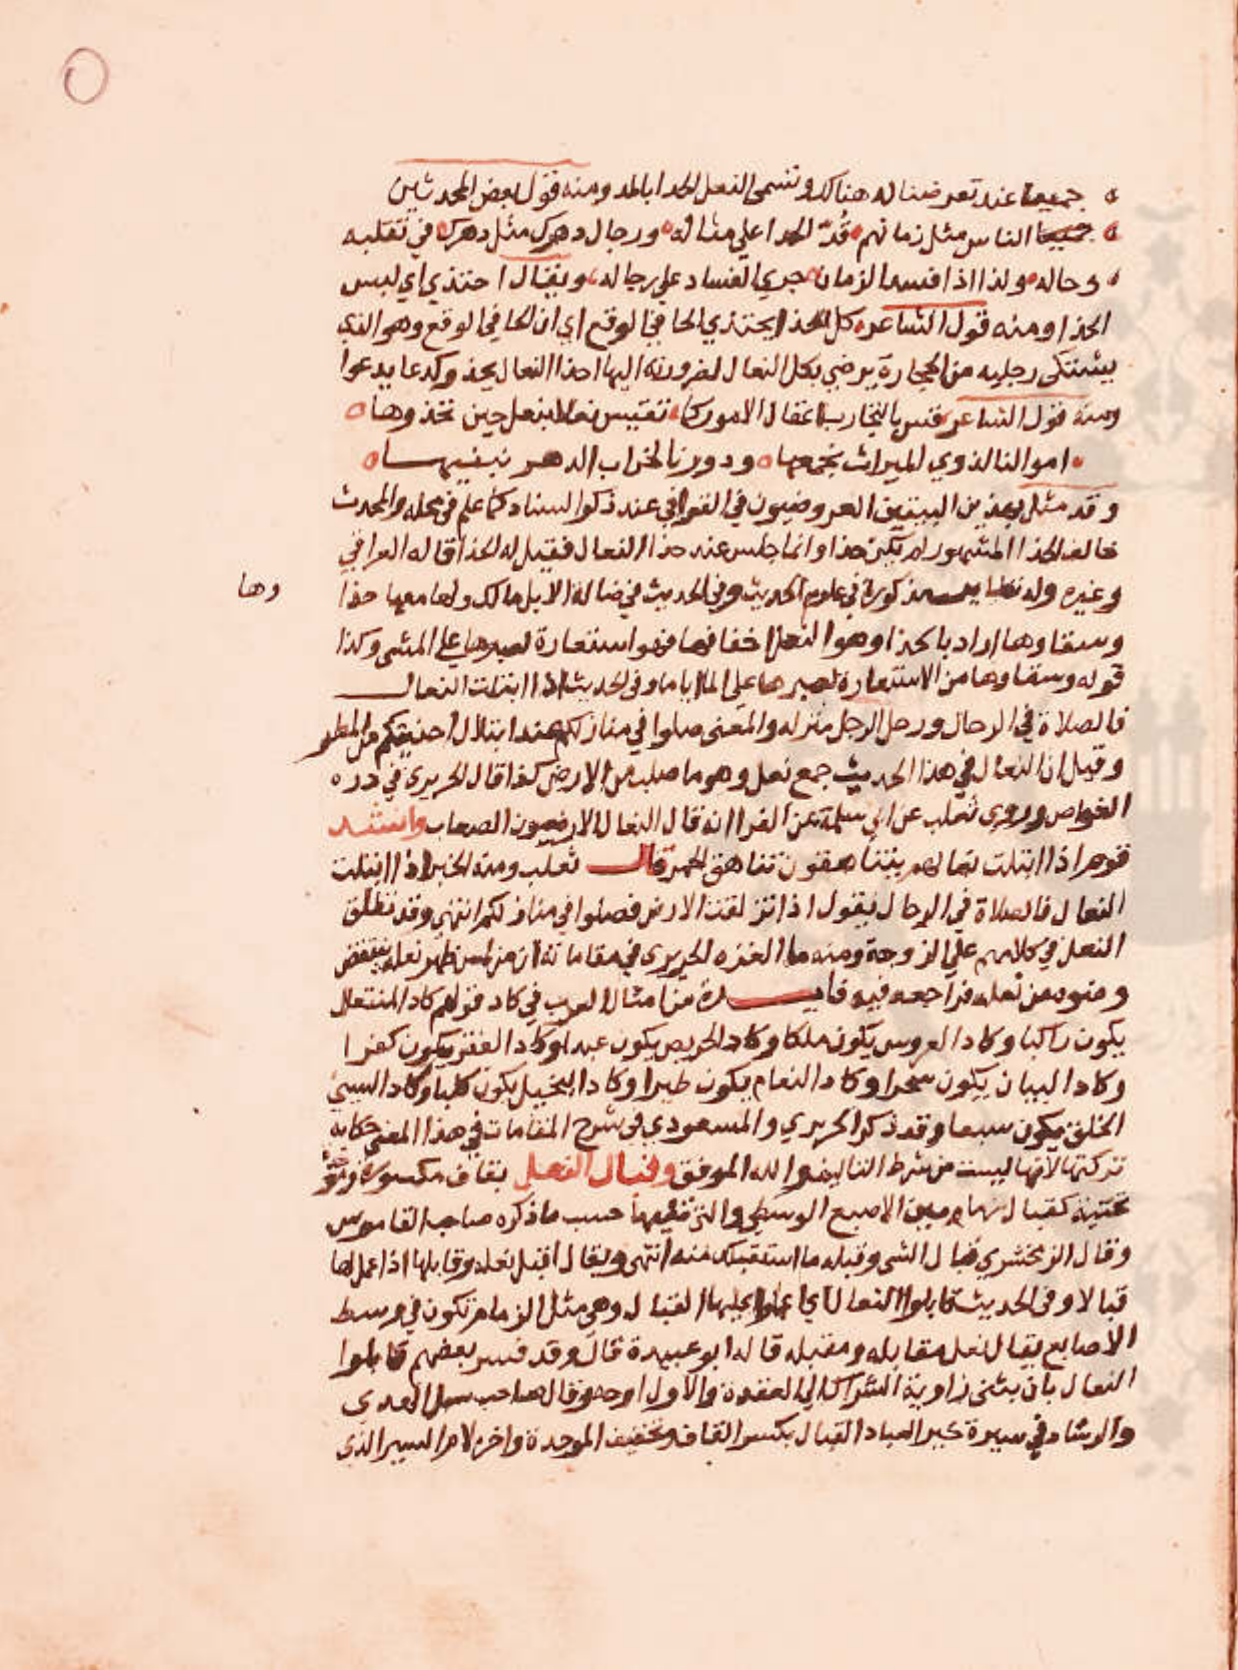 جميعا عند تعرضنا له هنالك وتسمى النعل الحذا بالمد ومنه قول بعض المحدثين
الناس مثل زمانهم قُدّ الحذا على مثاله ورجال دهرك مثل دهرك في تقلبه
وحاله ولذا اذا فسد الزمان جري الفساد علي رجاله ويقال احتذي اي لبس
الحذا ومنه قول الشاعر كل الحذا يحتذي الحافي الوقع اي ان الحافي الوقع وهو الذي
يشتكى رجليه من الحجارة يرضي بكل النعال لضرورته اليها احذا النعال يحذوكدعا يدعوا
ومنه قول الشاعر قس بالتجارب اغفال الامور كما تقيس نعلا بنعل حين تحذوها
اموالنا لذوي الميراث نجمعها ودورنا لخراب الدهر نبنيها
وقد مثل بهذين البيتين العروضيون في القوافي عند ذكر السناد كما علم في محله والمحدث
خالد الحذا المشهور لم يكن حذا وانما جلس عند حذا النعال فقيل له الحذا قاله العراقي
وغيره وله نظاير مذكورة في علوم الحديث وفي الحديث في ضالة الابل مالك ولها معها حذا
وها
وسقاوها اراد بالحذا وهو النعل اخفافها فهو استعارة لصبرها علي المشى وكذا
قوله وسقاوها من الاستعارة لصبرها على الما اياما وفي الحديث اذا ابتلت النعال
فالصلاة في الرحال ورحل الرجل منزله والمعنى صلوا في منازلكم عند ابتلال احذيتكم من المطر
وقيل ان النعال في هذا الحديث جمع نعل وهو ما صلب من الارض كذا قال الحريري في دره
الغواص وروي ثعلب عن ابي سلمة عن الفرا انه قال النعال الارضون الصعاب وانشد
قوم اذا ابتلت نعالهم يتناهقون تناهق الحمر قال ثعلب ومنه الخبر اذا ابتلت
النعال فالصلاة في الرحال يقول اذا تزلقت الارض فصلوا في منازلكم انتهى وقد تطلق
النعل في كلامهم علي الزوجة ومنه ما الغزه الحريري في مقاماته ان من لمس ظهر نعله ينتقض
وضوه من نعله فراجعه فيه فايدة من امثال العرب في كاد قولهم كاد المنتعل
يكون راكبا وكاد العروس يكون ملكا وكاد الحريص يكون عبدا وكاد الفقر يكون كفرا
وكاد البيان يكون سحرا وكاد النعام يكون طيرا وكاد البخيل يكون كلبا وكاد السيئ
الخلق يكون سبعا وقد ذكر الحريري والمسعودي في شرح المقامات في هذا المعنى حكاية
تركتها لانها ليست من شرط التاليف والله الموفق وقبال النعل بقاف مكسورة
تحتية كقبال زمام بين الاصبع الوسطى والتي تليها حسب ما ذكره صاحب القاموس
وقال الزمخشري قبال الشى وقبله ما استقبلك منه انتهى ويقال اقبل نعله وقابلها اذا عمل لها
قبالا وفي الحديث قابلوا النعال اي اعملوا عليها القبال وهي مثل الزمام تكون في وسط
الاصابع يقال نعل مقابله ومقبله قاله ابو عبيدة قال وقد فسر بعضهم قابلوا
النعال بان يثنى زاوية الشراك الي العقدة والاول اوجه وقال صاحب سبل الهدى
والرشاد في سيرة خير العباد القبال بكسر القاف وتخفيف الموحدة واخره لام السير الذي